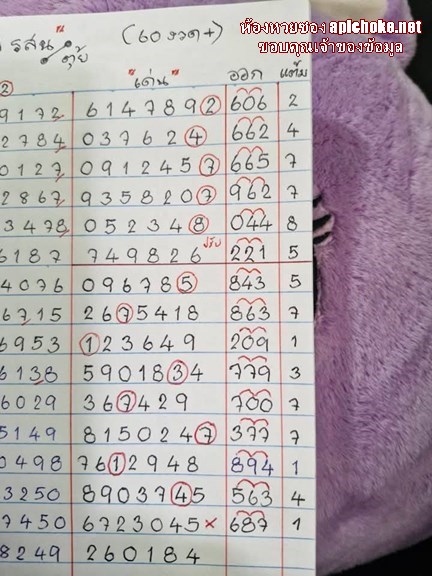 ห้องหวยของ aplchoke.net
ขอบคุณเจ้าของข้อมูล
รสน ตุ้ย (60 งวด+)
"เด่น" ออก แต้ม
2
9172 6147892 606 2
2784 037624 662 4
0127 0912457 665 7
2867 9358207 962 7
3478 052348 044 8
6187 749826 ปรับ 221 5
4076 096785 843 5
6715 2675418 863 7
6953 123649 209 1
6138 5901834 779 3
6029 367429 700 7
5149 8150247 377 7
0498 7612948 894 1
3250 8903745 563 4
7450 6723045 × 687 1
8249 260184